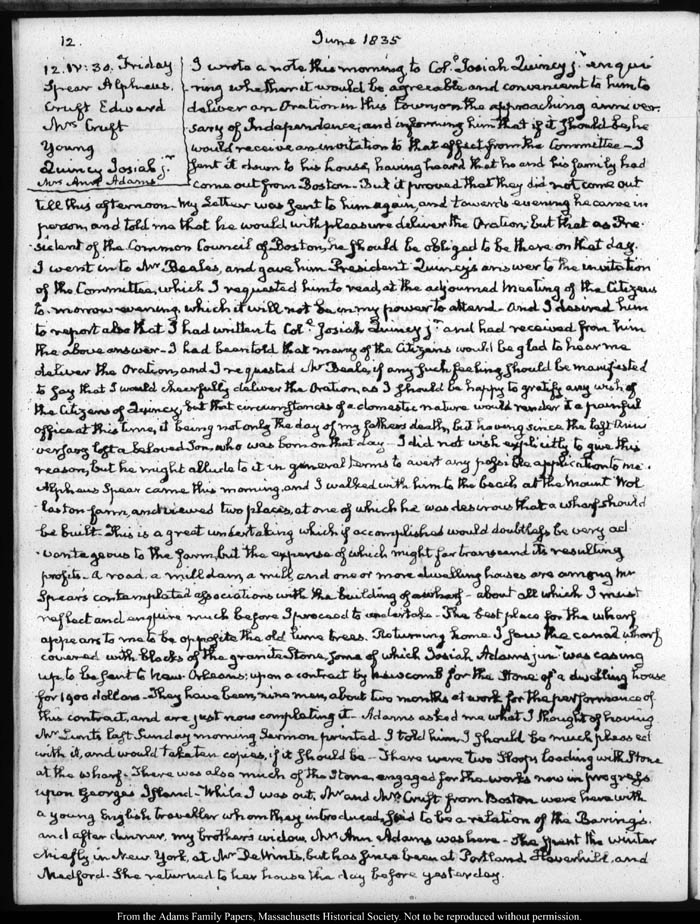 12.
June 1835
12. IV:30. Friday
Spear Alpheus.
Cruft Edward
Mrs Cruft
Young
Quincy Josiah jr
Mrs Ann Adams
I wrote a note this morning to Col. Josiah Quincy jr enqui
ring whether it would be agreeable and convenient to him, to
deliver an Oration in this Town, on the approaching anniver
sary of Independence; and informing him that if it should be, he
would receive an invitation to that effect from the Committee— I
sent it down to his house, having heard that he and his family had
come out from Boston— But it proved that they did not come out
till this afternoon— My Letter was sent to him again, and towards evening he came in
person, and told me that he would with pleasure deliver the Oration, but that as Pre-
sident of the Common Council of Boston, he should be obliged to be there on that day.
I went in to Mr Beales, and gave him President Quincy's answer to the invitation
of the Committee, which I requested him to read, at the adjourned Meeting of the Citizens
to-morrow evening, which it will not be in my power to attend— And I desired him
to report also that I had written to Col. Josiah Quincy jr and had received from him
the above answer— I had been told that many of the Citizens would be glad to hear me
deliver the Oration, and I requested Mr Beale, if any such feeling should be manifested
to say that I would cheerfully deliver the Oration, as I should be happy to gratify any wish of
the Citizens of Quincy, but that circumstances of a domestic nature would render it a painful
office at this time, it being not only the day of my father's death, but having since the last Anni
versary lost a beloved Son, who was born on that day— I did not wish explicitly to give this
reason, but he might allude to it in general terms to avert any possible application to me.
Alpheus Spear came this morning, and I walked with him to the beach at the Mount Wol
laston farm, and viewed two places, at one of which he was desirous that a wharf should
be built. This is a great undertaking which if accomplished would doubtless be very ad
vantageous to the farm, but the expense of which might far transcend its resulting
profits. A road, a mill dam, a mill, and one or more dwelling houses are among Mr
Spear's contemplated associations with the building of a wharf— about all which I must
reflect and enquire much before I proceed to undertake— The best place for the wharf
appears to me to be opposite the old lime trees. Returning home I saw the canal wharf
covered with blocks of the granite Stone, some of which Josiah Adams junr was casing
up to be sent to New Orleans; upon a contract by Newcomb for the Stone of a dwelling house
for 1900 dollars— They have been, nine men, about two months at work for the performance of
this contract, and are just now completing it— Adams asked me what I thought of having
Mr Lunt's last Sunday morning Sermon printed. I told him I should be much pleased
with it, and would take ten copies, if it should be— There were two Sloops loading with Stone
at the wharf— There was also much of the Stone engaged for the works now in progress
upon George's Island— While I was out, Mr and Mrs Cruft from Boston were here with
a young English traveller whom they introduced, said to be a relation of the Barings.
and after dinner, my brother's widow, Mrs Ann Adams was here— She spent the winter
chiefly in New York, at Mr De Wints, but has since been at Portland, Haverhill, and
Medford. She returned to her house the day before yesterday.
From the Adams Family Papers, Massachusetts Historical Society. Not to be reproduced without permission.